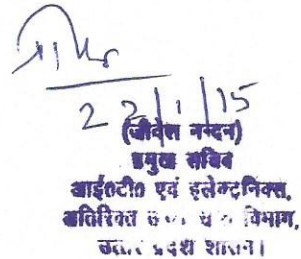 22/1/15
(जीवेश नन्दन)
प्रमुख सचिव
आई०टी० एवं इलेक्ट्रनिक्स,
अतिरिक्त विभाग,
उत्तर प्रदेश शासन।